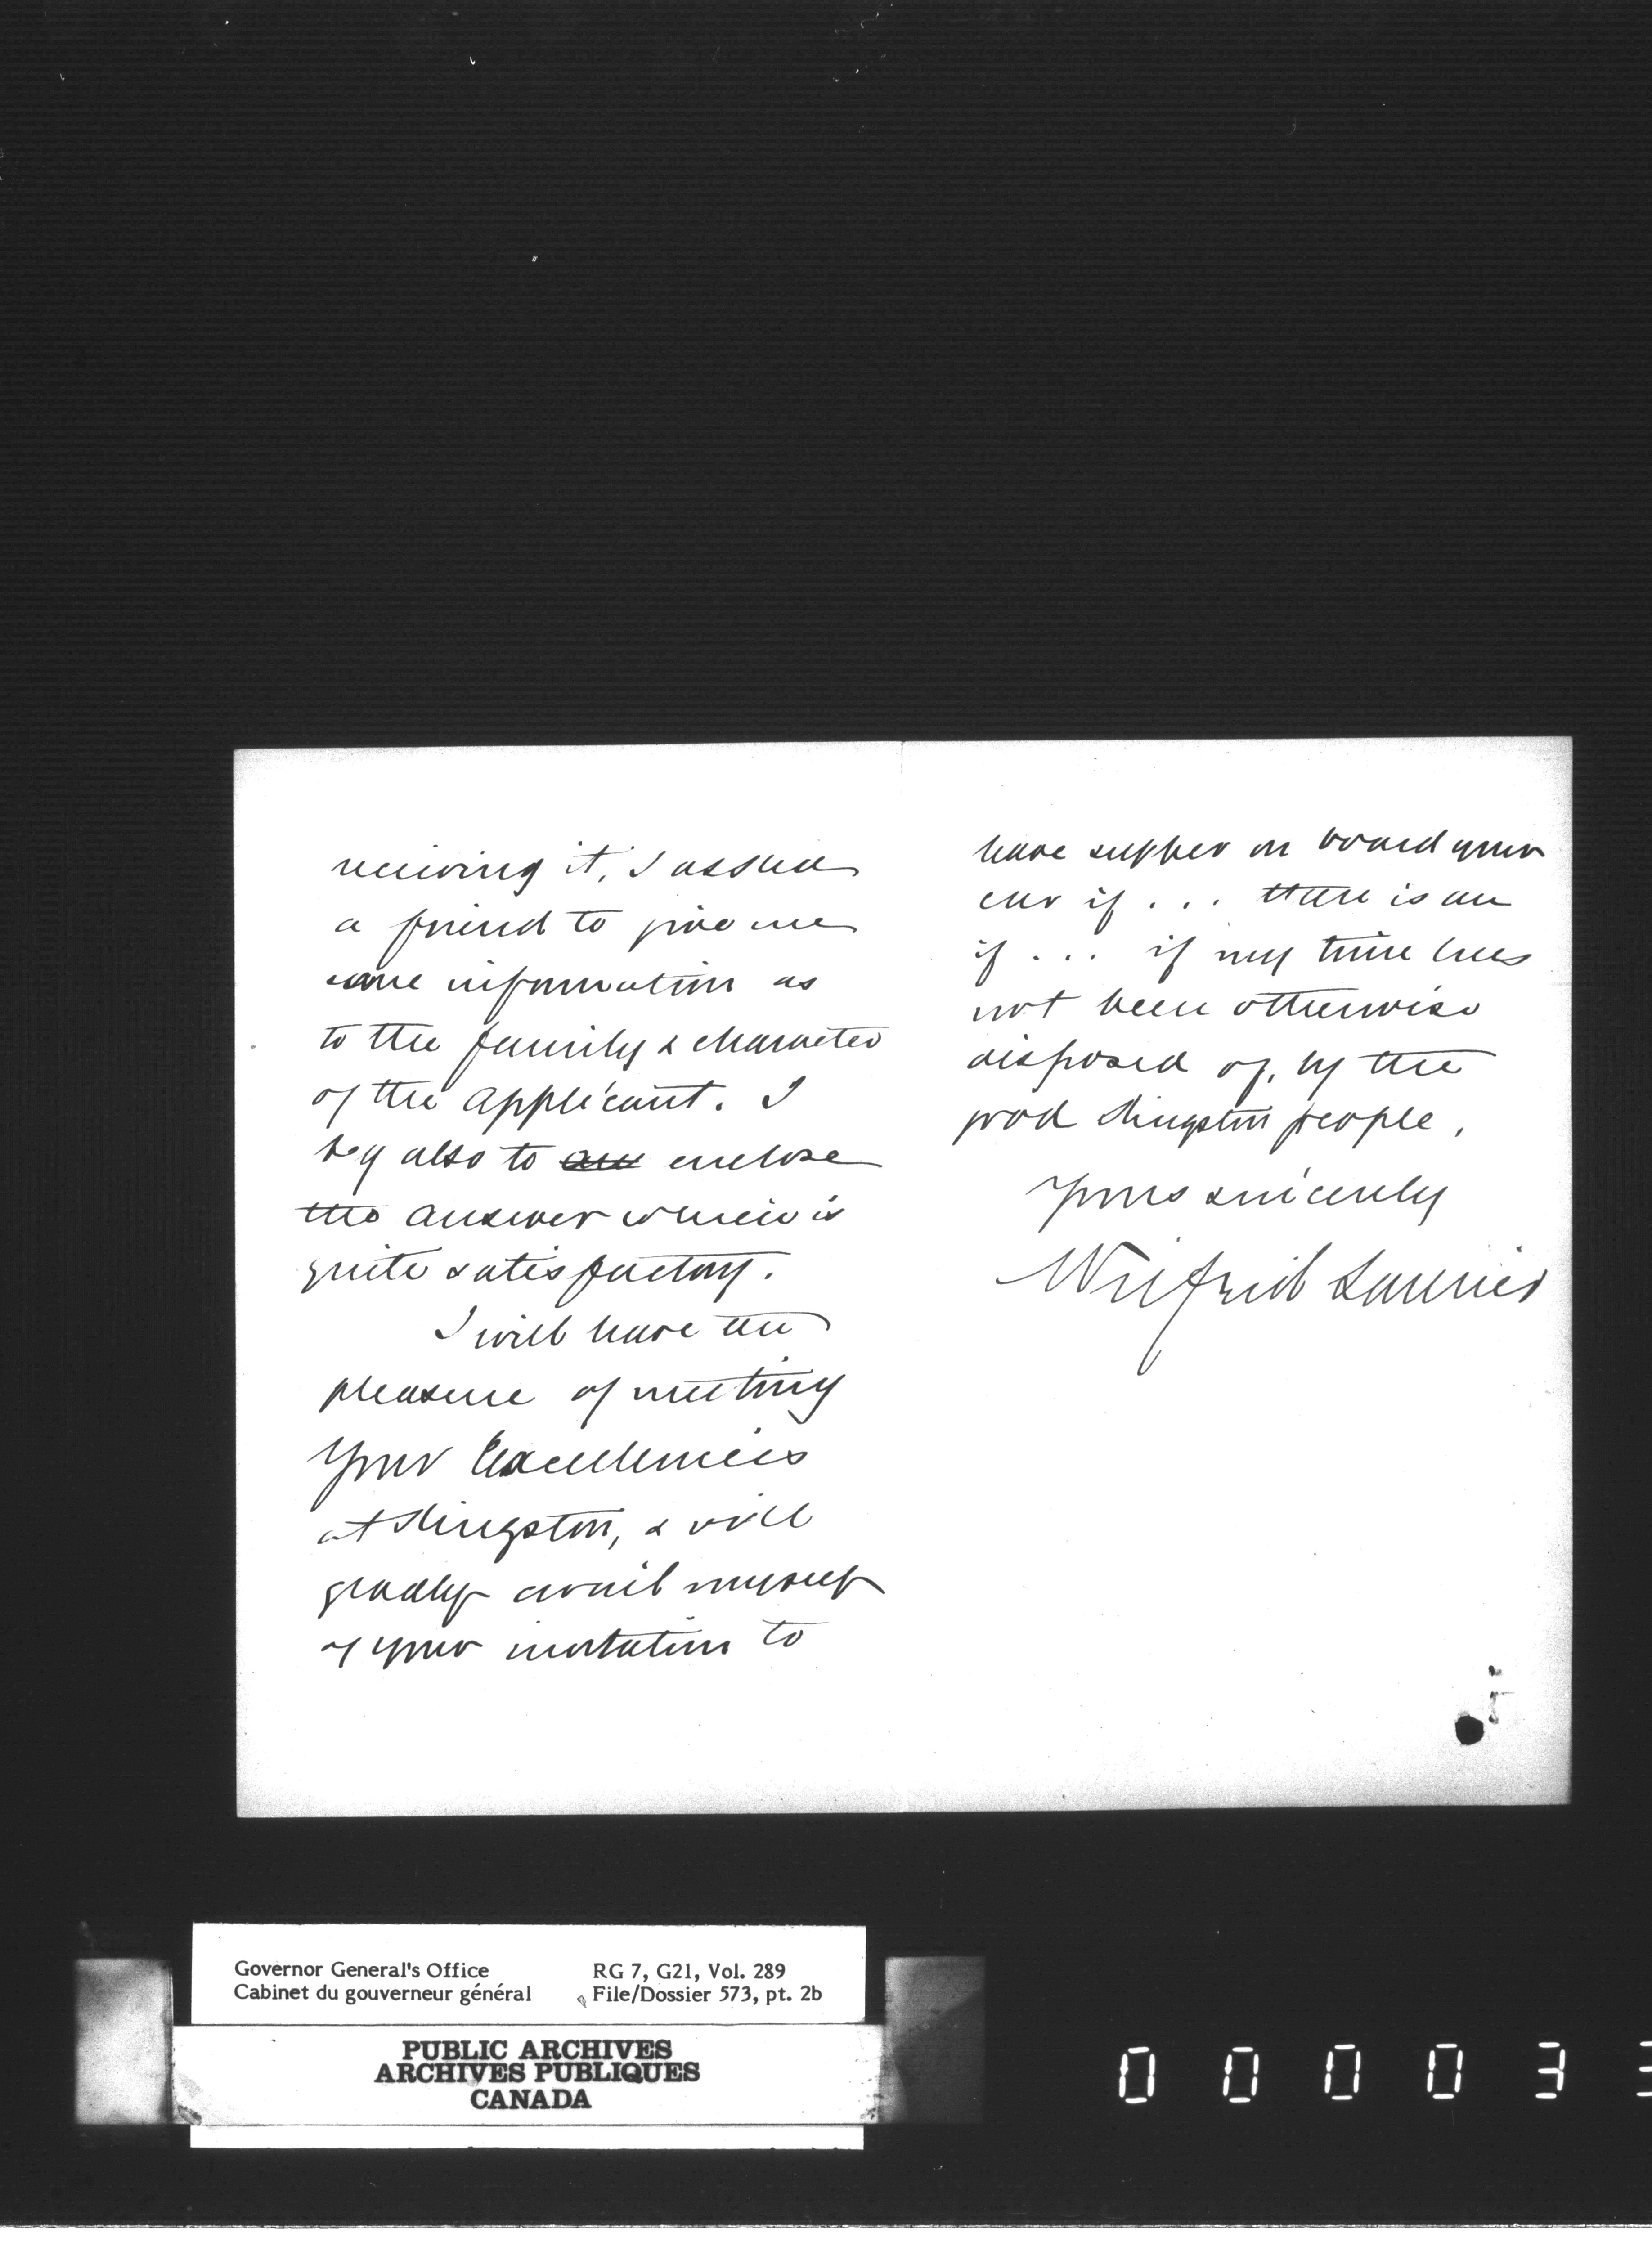 receiving it, I asked
a friend to give me
some information as
to the family & character
of the applicant. I
beg also to an enclose
the answer which is
quite satisfactory.
I will have the
pleasure of meeting
Your Excellencies
at Kingston, & will
gladly avail myself
of your invitation to
have supper on board your
car if ... there is an
if ... if my time has
not been otherwise
disposed of, by the
good Kingston people.
Yours sincerely
Wilfrid Laurier
Governor General's Office RG 7, G21, Vol. 289
Cabinet du gouverneur général File/Dossier 573, pt. 2b
PUBLIC ARCHIVES
ARCHIVES PUBLIQUES
CANADA
0 0 0 0 3 3